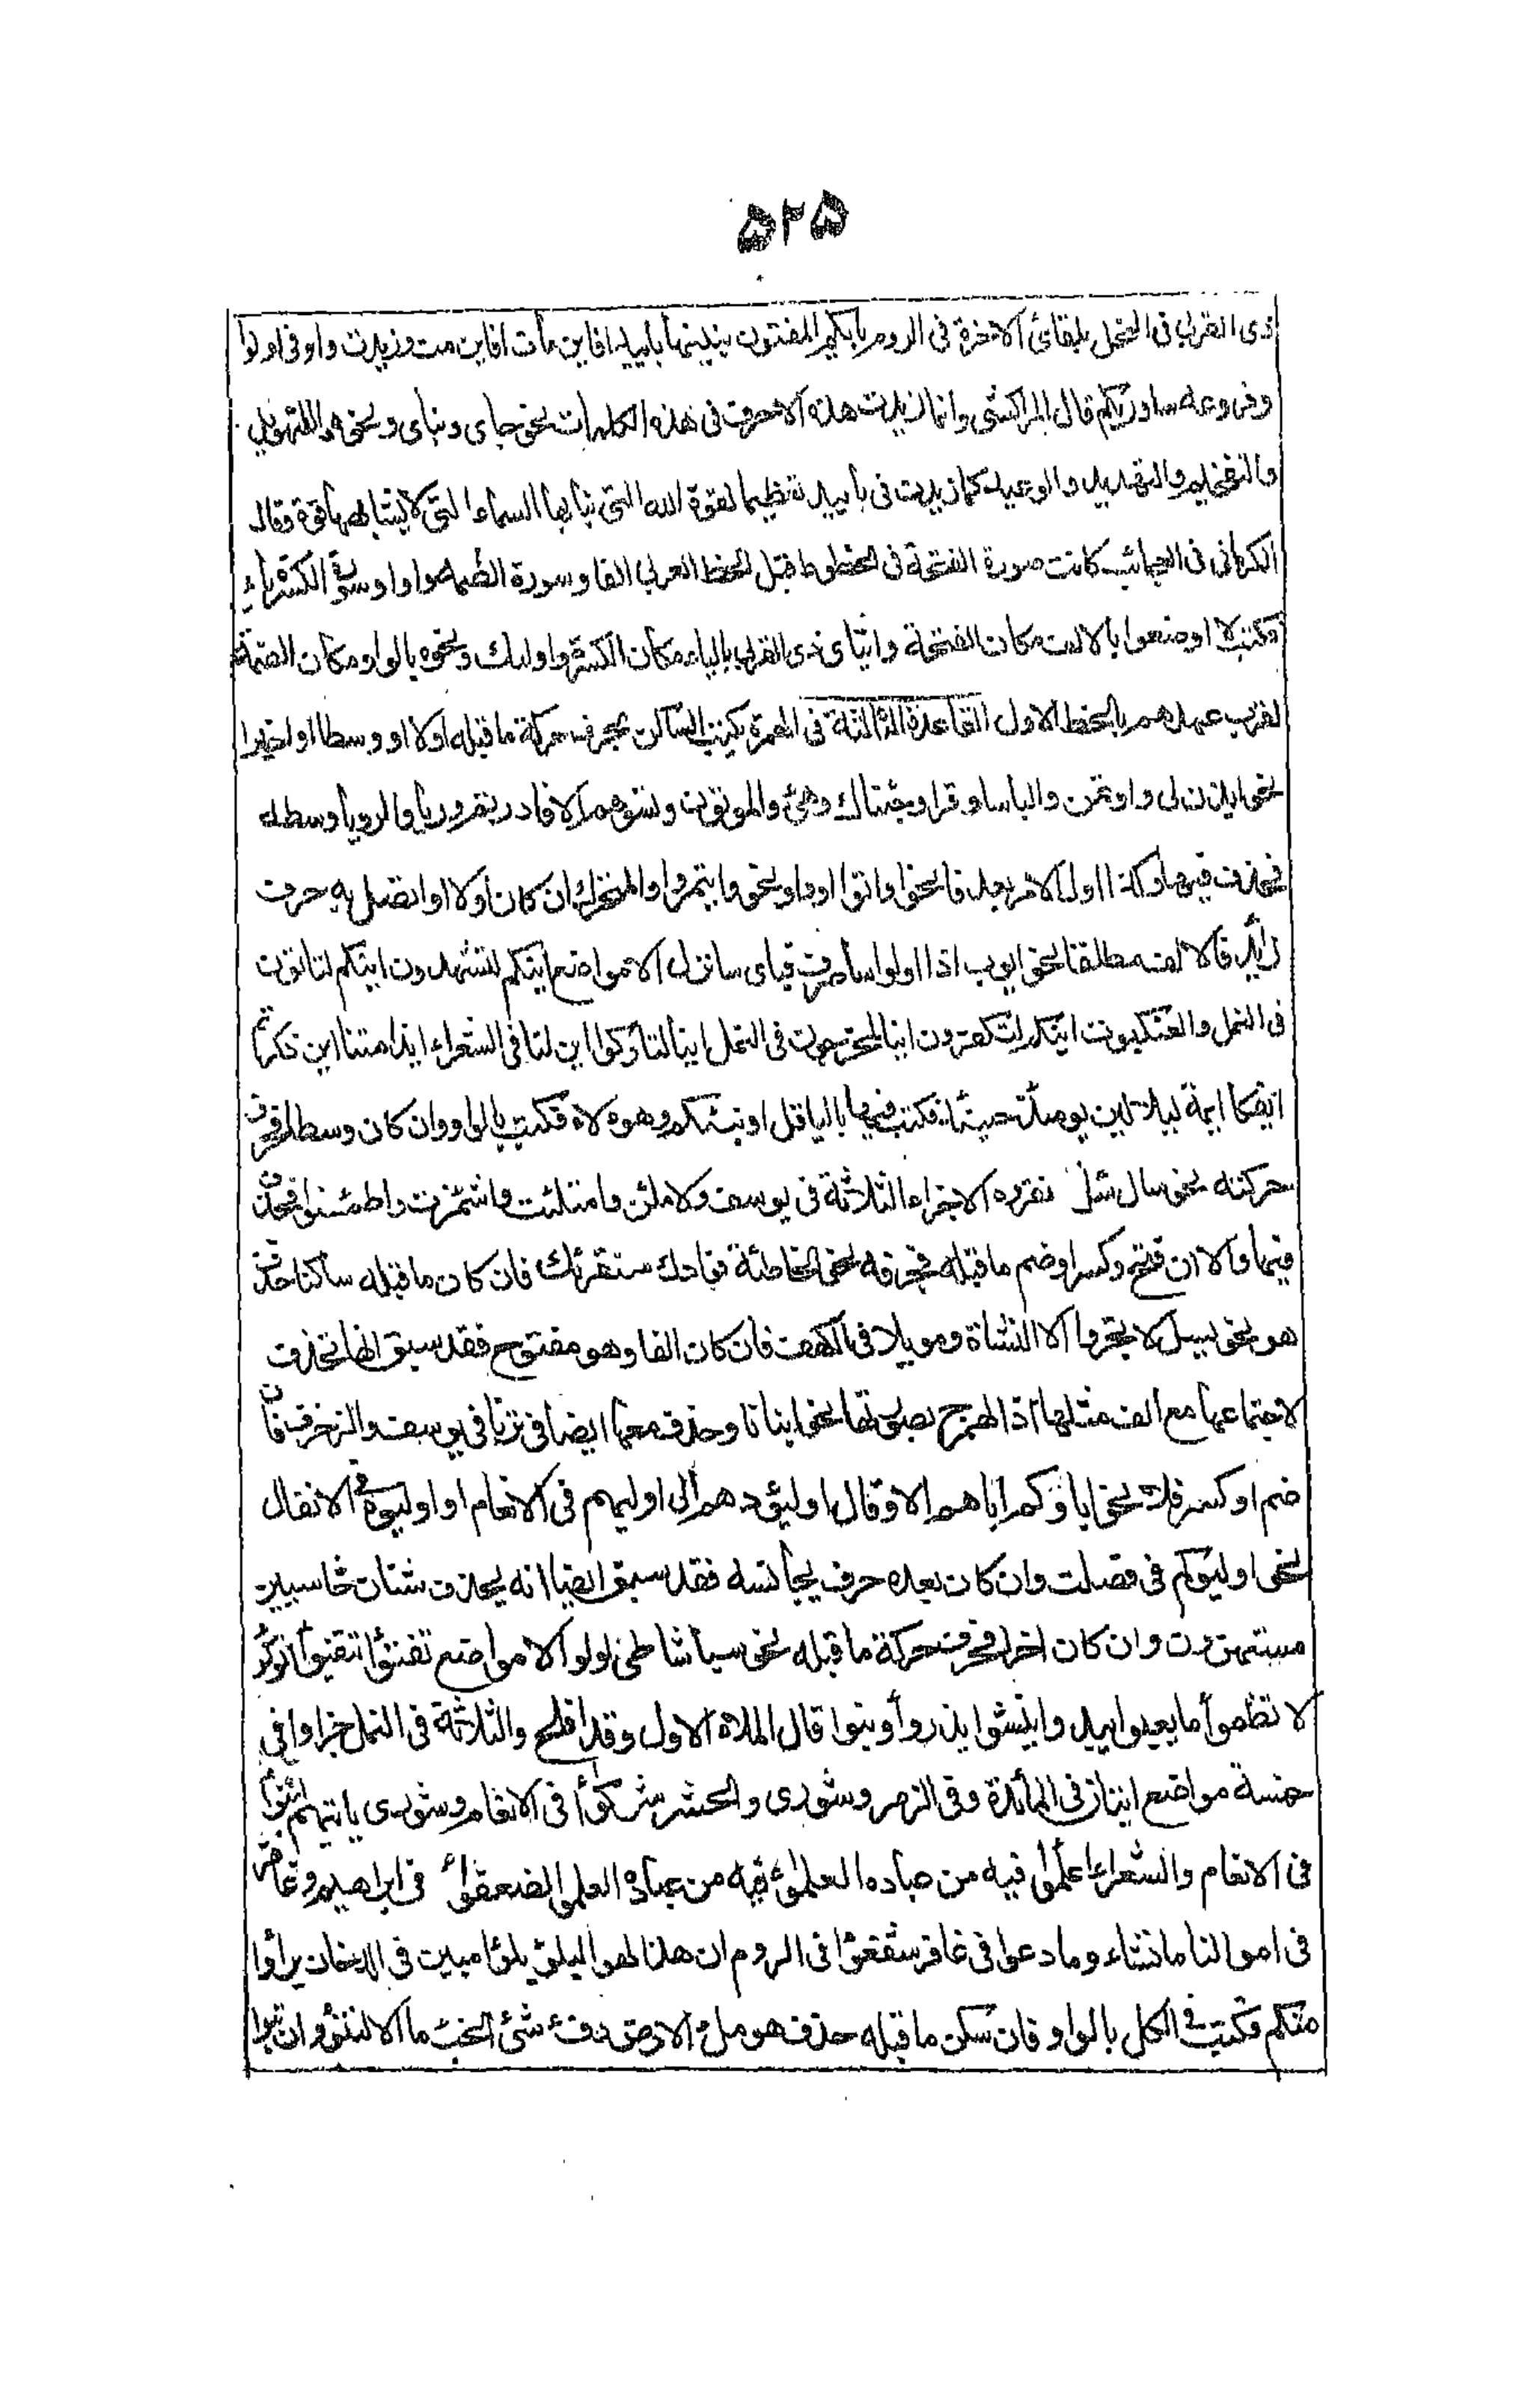 ۵۲۵
ذى القربى فى النحل بلقائ الاخرة فى الروم بايكم المفتون بنينها بابييد افاين مات افاين مت وزيدت واو فى اولوا
وفروعه ساوريكم قال المراكشى وانما زيدت هذه الاحرف فى هذه الكلمات نحو جاى ونباى ونحوه للتهويل
والتفخيم والتهديد والوعيد كما زيدت فى باييد تعظيما لقوة الله التى بنا بها السماء التى لا يشابهها قوة وقال
الكرمانى فى العجائب كانت صورة الفتحة فى الخطوط قبل الخط العربى الفا وسورة الضمة واوا وسورة الكسرة ياء
فكتب لا اوضعوا بالالف مكان الفتحة وايتاى ذى القربى بالياء مكان الكسرة واوليك ونحوه بالواو مكان الضمة
لقرب عهدهم بالخط الاول القاعدة الثالثة فى الهمزة يكتب الساكن بحرف حركة ما قبله اولا او وسطا او اخيرا
نحو ايذن لى واوتمن والباسا واقرا وجئناك وهئ والموتون وتسوهم الا فادرتم ورءيا والرويا وسطه
فحذف فيها وكذا اول الامر بعد فا نحو فاتوا او واو نحو واتمروا والمتحرك ان كان اولا او اتصل به حرف
زائد فالالف مطلقا نحو ايوب اذا اولوا ساصرف فباى سانزل الا مواضع ائنكم لتشهدون ائنكم لتاتون
فى النمل والعنكبوت ائنكم لتكفرون اينا لمخرجون فى النمل اينا لتاركوا اين لنا فى الشعراء ايذا متنا اين ذكرتم
ايفكا ايمة ليلا لين يوميذ حينئذ فكتب فيها باليا قل اونبئكم وهولاء فكتب بالواو وان كان وسطا فحرف
حركته نحو سال سئل نقروه الا جزاء الثلاثة فى يوسف ولاملئن وامتلئت واشمئزت واطمئنوا فحذف
فيها والا ان فتح وكسر او ضم ما قبله فبحرفه نحو الخاطئة فوادك سنقرئك فان كان ما قبله ساكنا حذف
هو نحو يسيل لا تجروا الا النشاة ومويلا فى الكهف فان كان الفا وهو مفتوح فقد سبق انها تحذف
لاجتماعها مع الف مثلها اذ الهمزة ح بصورتها نحو ابناناو حذف معها ايضا فى قرنا فى يوسف والزخرف فان
ضم او كسر فلا نحو اباوكم اباهم الا وقال اوليوهم الى اوليهم فى الانعام ان اوليوه فى الانفال
نحن اوليوكم فى فصلت وان كان بعده حرف يجانسه فقد سبق ايضا انه يحذف شنان خاسيين
مستهزون وان كان اخرا فبحرف حركة ما قبله نحو سبا شاطئ لولو الا مواضع تفتؤا تتفيؤا اتوكؤ
لا تظمؤا ما يعبؤا يبدؤا ينشؤا يذرؤا نبؤا قال الملاء الاول وقد افلح والثلاثة فى النمل جزاوا فى
خمسة مواضع اثنان فى المائدة وفى الزمر وشورى والحشر شركؤا فى الانعام وشورى ياتيهم انبؤا
فى الانعام والشعراء علمؤا فيه من عباده العلمؤ فيه من عباده العلمؤ الضعفؤا فى ابراهيم وغافر
فى اموالنا ما نشاء وما دعوا فى غافر شفعؤا فى الروم ان هذا لهو البلؤ بلؤا مبين فى الدخان برأوا
منكم فكتب فى الكل بالواو فان سكن ما قبله حذف هو ملء الارض دفء شئ الخبء ما الا لتنؤ وان تبوا